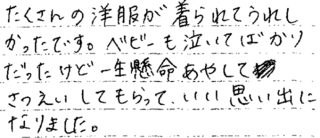 たくさんの洋服が着られてうれし
かったです。ベビーも泣いてばかり
だったけど一生懸命あやして
さつえいしてもらって、いい思い出に
なりました。